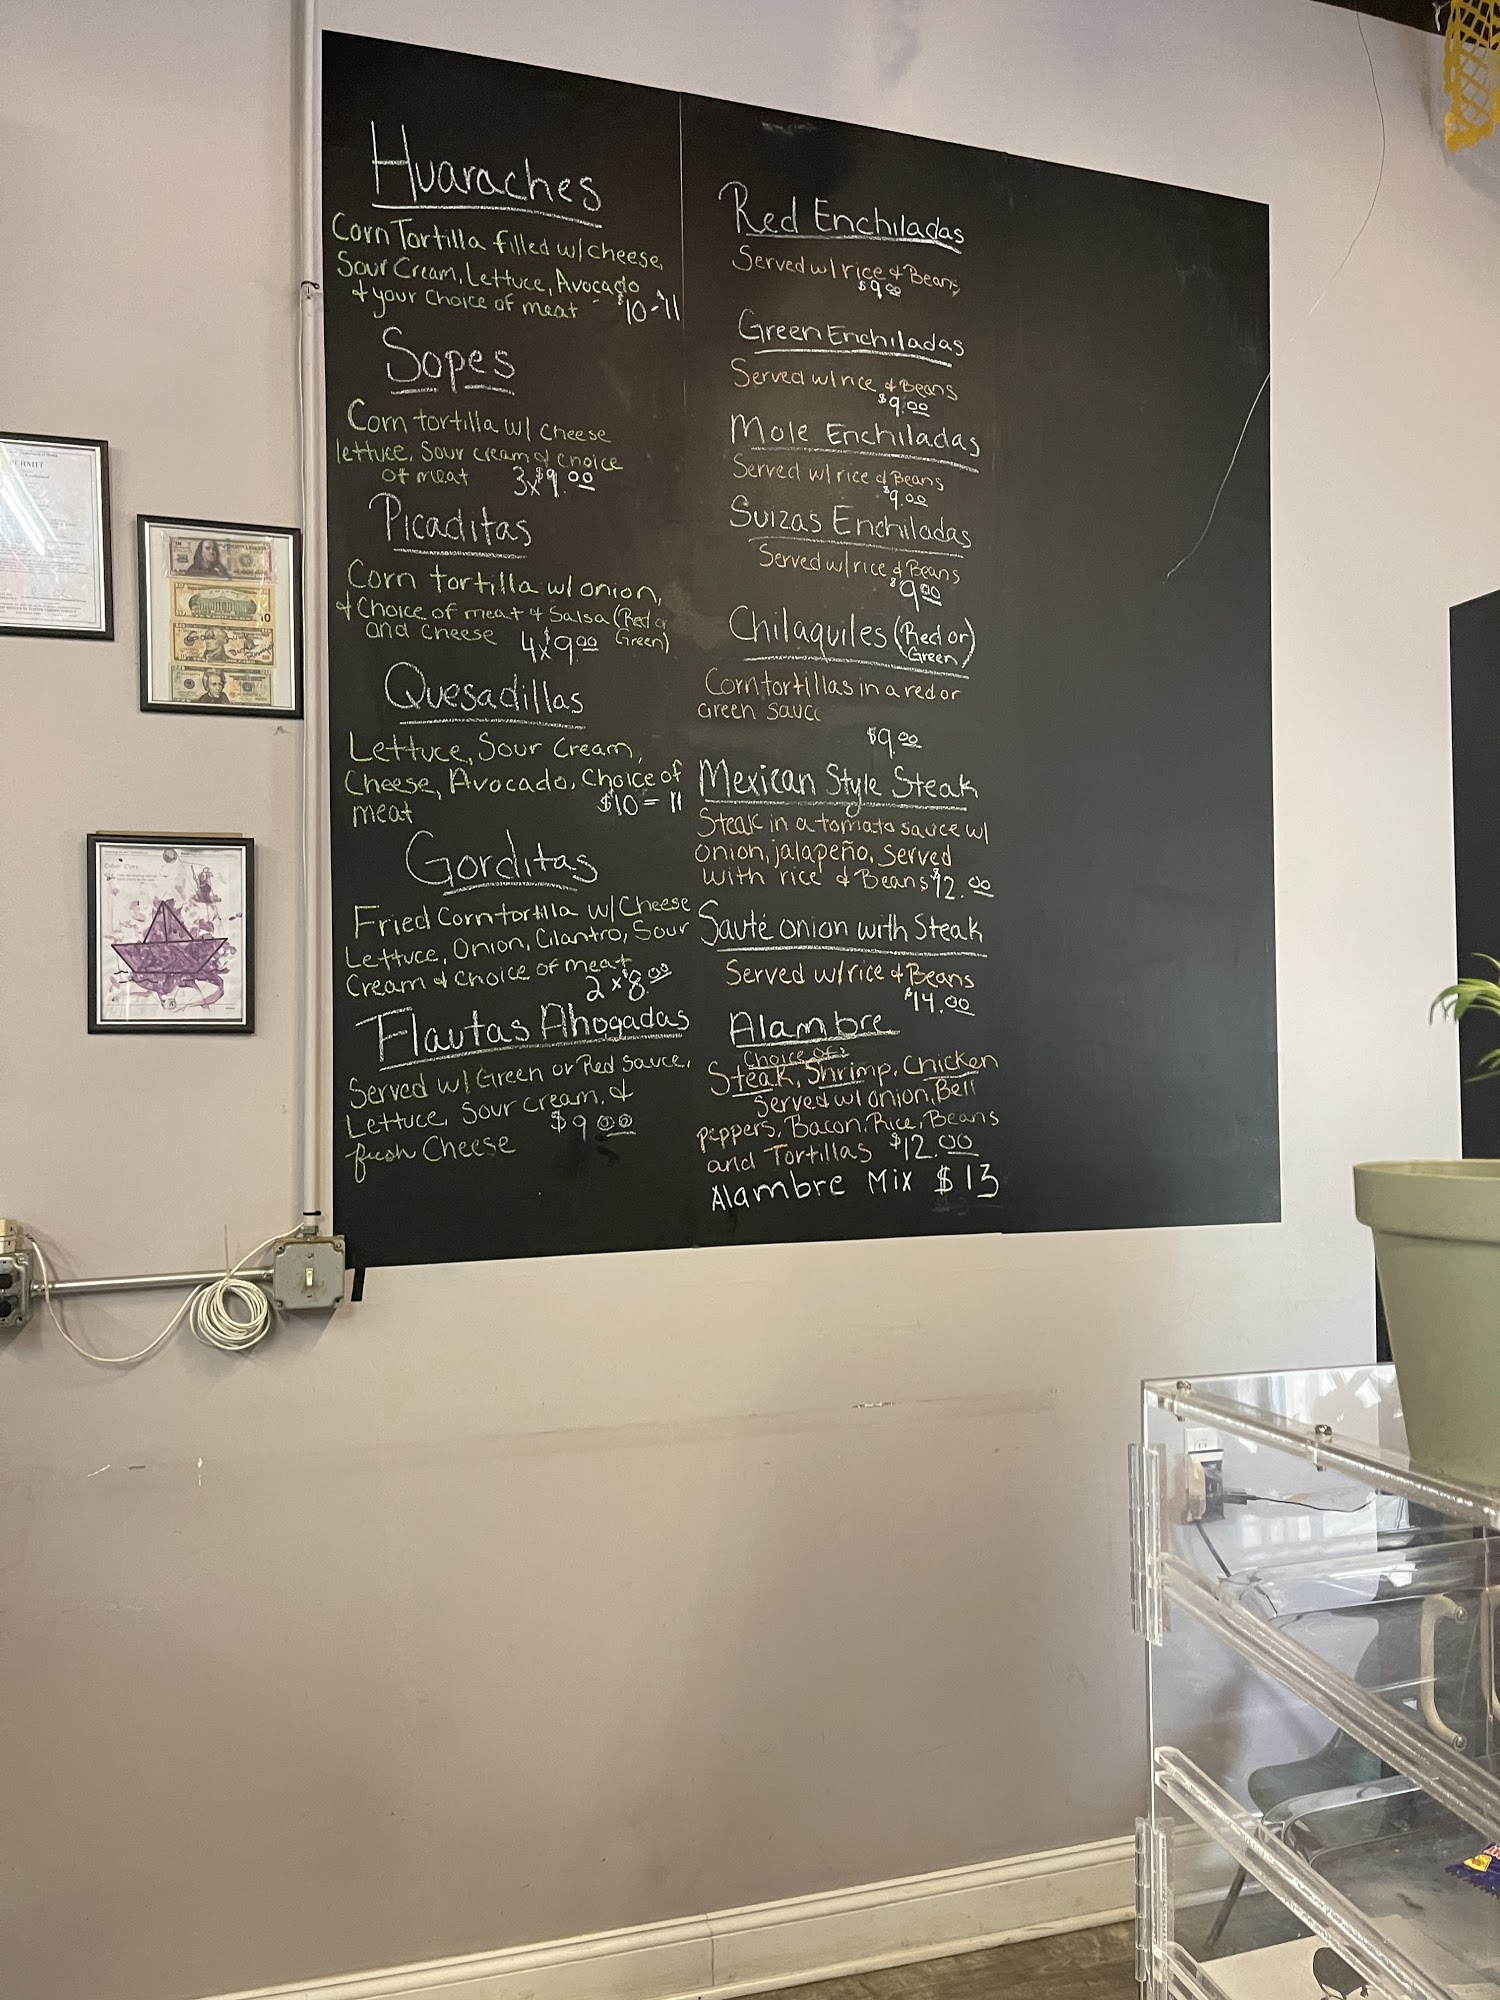 Huaraches
Corn Tortilla filled w/cheese,
Sour Cream, Lettuce, Avocado
& your choice of meat $10-$11
Sopes
Corn tortilla w/ cheese
lettuce, Sour cream & choice
of meat 3x$9.00
Picaditas
Corn tortilla w/ onion,
& Choice of meat & Salsa (Red or
and cheese 4x$9.00 Green)
Quesadillas
Lettuce, Sour Cream,
Cheese, Avocado, Choice of
meat $10 - 11
Gorditas
Fried Corn tortilla w/ Cheese
Lettuce, Onion, Cilantro, Sour
Cream & Choice of meat
2 x $8.00
Flautas Ahogadas
Served w/ Green or Red Sauce,
Lettuce, Sour cream, &
fresh Cheese $9.00
Red Enchiladas
Served w/ rice & Beans
$9.00
Green Enchiladas
Served w/ rice & Beans
$9.00
Mole Enchiladas
Served w/ rice & Beans
$9.00
Suizas Enchiladas
Served w/ rice & Beans
$9.00
Chilaquiles (Red or
Green)
Corn tortillas in a red or
Green sauce
$9.00
Mexican Style Steak
Steak in a tomato sauce w/
onion, jalapeño, Served
with rice & Beans $12.00
Sauté onion with Steak
Served w/ rice & Beans
$14.00
Alambre
Choice of:
Steak, Shrimp, Chicken
Served w/ onion, Bell
Peppers, Bacon, Rice, Beans
and Tortillas $12.00
Alambre Mix $13